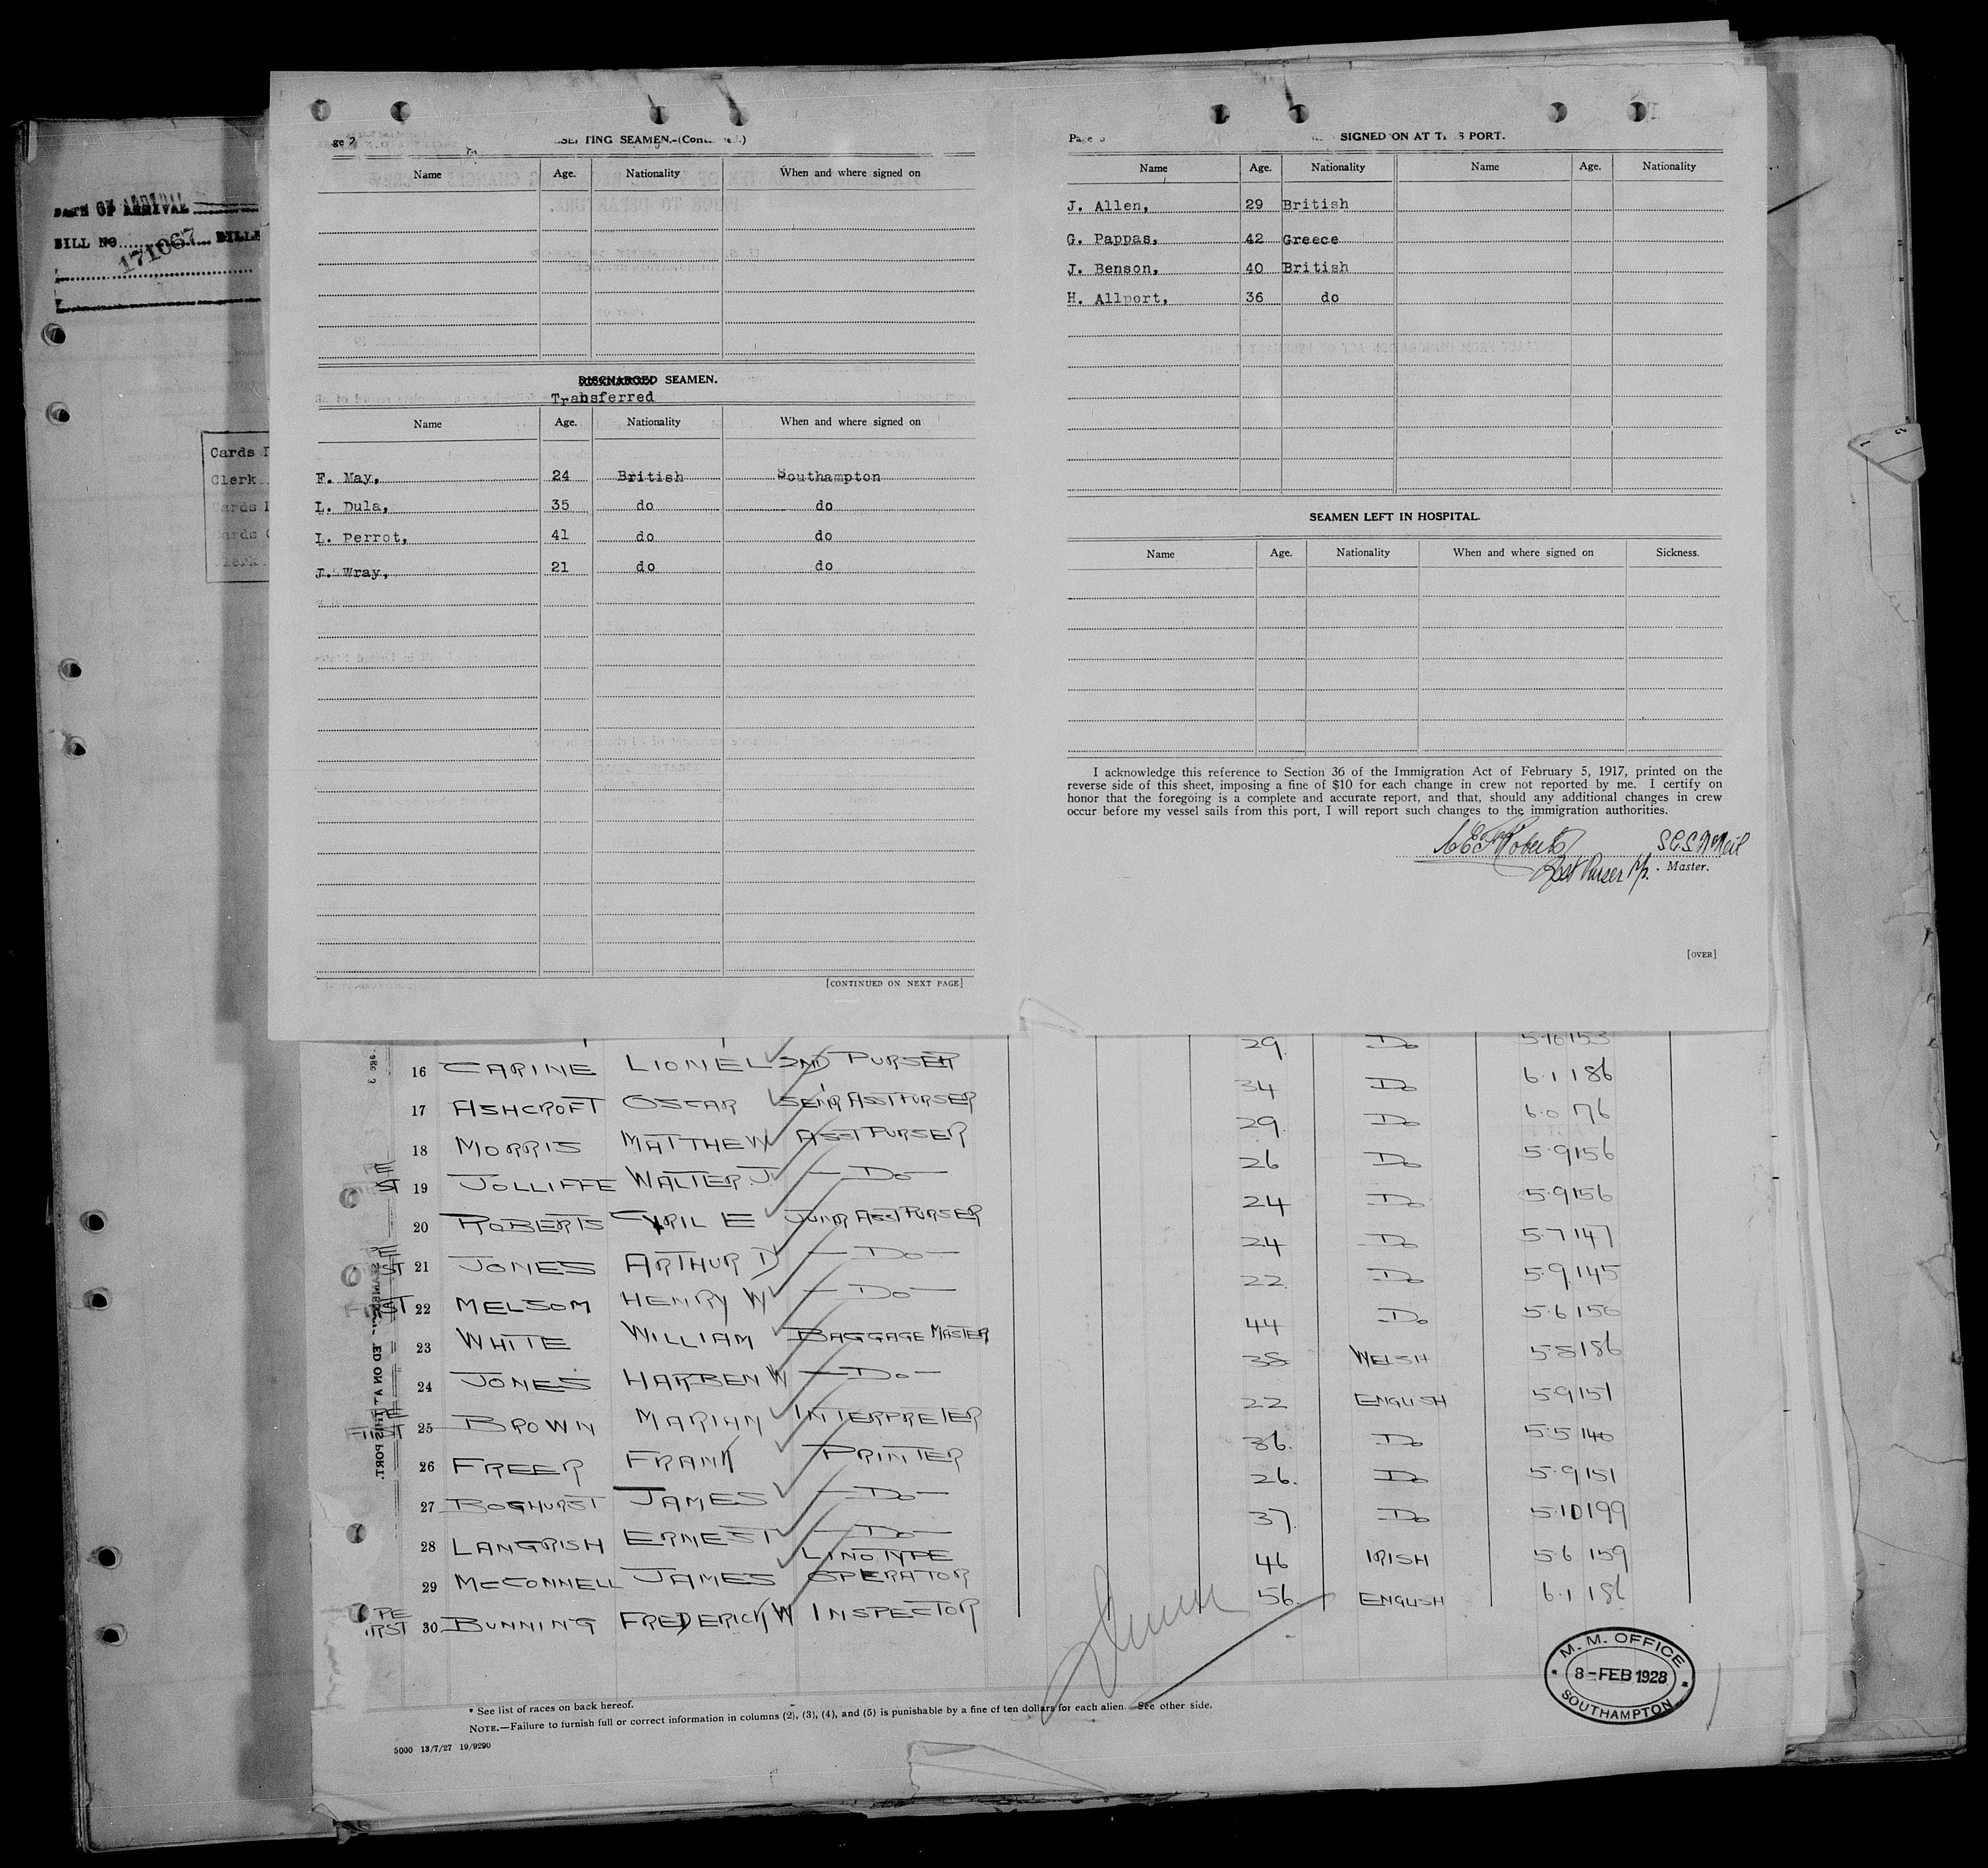 DATE OF ARRIVAL
BILL NO. 171067 BILL
Cards
Clerk
Cards
Cards
Clerk
SEAMEN.-
Name Age. Nationality When and where signed on
DISCHARGED SEAMEN.
Transferred
Name Age. Nationality When and where signed on
F. May, 24 British Southampton
L. Dula, 35 do do
L. Perrot, 41 do do
J. Wray, 21 do do
[CONTINUED ON NEXT PAGE]
SIGNED ON AT THIS PORT.
Name Age. Nationality Name Age. Nationality
J. Allen, 29 British
G. Pappas, 42 Greece
J. Benson, 40 British
H. Allport, 36 do
SEAMEN LEFT IN HOSPITAL.
Name Age. Nationality When and where signed on Sickness.
I acknowledge this reference to Section 36 of the Immigration Act of February 5, 1917, printed on the
reverse side of this sheet, imposing a fine of $10 for each change in crew not reported by me. I certify on
honor that the foregoing is a complete and accurate report, and that, should any additional changes in crew
occur before my vessel sails from this port, I will report such changes to the immigration authorities.
Roberts
Purser
Master.
[OVER]
29. Do 5.10 153
16 CARINE LIONEL 2ND PURSER 34 Do 6.1 186
17 ASHCROFT OSCAR SENR ASST PURSER 29. Do 6.0 176
18 MORRIS MATTHEW ASST PURSER 26 Do 5.9 156
19 JOLLIFFE WALTER J. — Do — 24 Do 5.9 156
20 ROBERTS CYRIL E JUNR ASST PURSER 24 Do 5.7 147
21 JONES ARTHUR D — Do — 22 Do 5.9 145
22 MELSOM HENRY W — Do — 44 Do 5.6 150
23 WHITE WILLIAM BAGGAGE MASTER 38 WELSH 5.8 186
24 JONES HARBEN W — Do — 22 ENGLISH 5.9 151
25 BROWN MARIAN INTERPRETER 36. Do 5.5 140
26 FREER FRANK PRINTER 26. Do 5.9 151
27 BOGHURST JAMES — Do — 37. Do 5.10 199
28 LANGRISH ERNEST — Do — 46 IRISH 5.6 159
29 McCONNELL JAMES LINOTYPE OPERATOR 56. ENGLISH 6.1 186
30 BUNNING FREDERICK W INSPECTOR
M. M. OFFICE
8-FEB 1928
SOUTHAMPTON
* See list of races on back hereof.
NOTE.—Failure to furnish full or correct information in columns (2), (3), (4), and (5) is punishable by a fine of ten dollars for each alien. See other side.
5000 13/7/27 19/9290